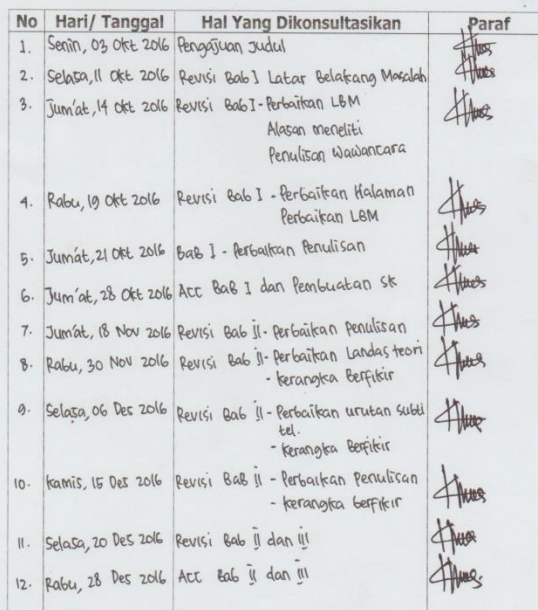 No Hari/ Tanggal Hal Yang Dikonsultasikan Paraf
1. Senin, 03 Okt 2016 Pengajuan Judul
2. Selasa, 11 Okt 2016 Revisi Bab I Latar Belakang Masalah
3. Jum'at, 14 Okt 2016 Revisi Bab I - Perbaikan LBM
Alasan meneliti
Penulisan Wawancara
4. Rabu, 19 Okt 2016 Revisi Bab I - Perbaikan Halaman
Perbaikan LBM
5. Jum'at, 21 Okt 2016 BaB I - Perbaikan Penulisan
6. Jum'at, 28 Okt 2016 Acc BaB I dan Pembuatan SK
7. Jum'at, 18 Nov 2016 Revisi Bab II - Perbaikan Penulisan
8. Rabu, 30 Nov 2016 Revisi Bab II - Perbaikan Landas teori
- kerangka Berfikir
9. Selasa, 06 Des 2016 Revisi Bab II - Perbaikan urutan subti
tel.
- kerangka Berfikir
10. Kamis, 15 Des 2016 Revisi BaB II - Perbaikan Penulisan
- kerangka berfikir
11. Selasa, 20 Des 2016 Revisi Bab II dan III
12. Rabu, 28 Des 2016 Acc Bab II dan III